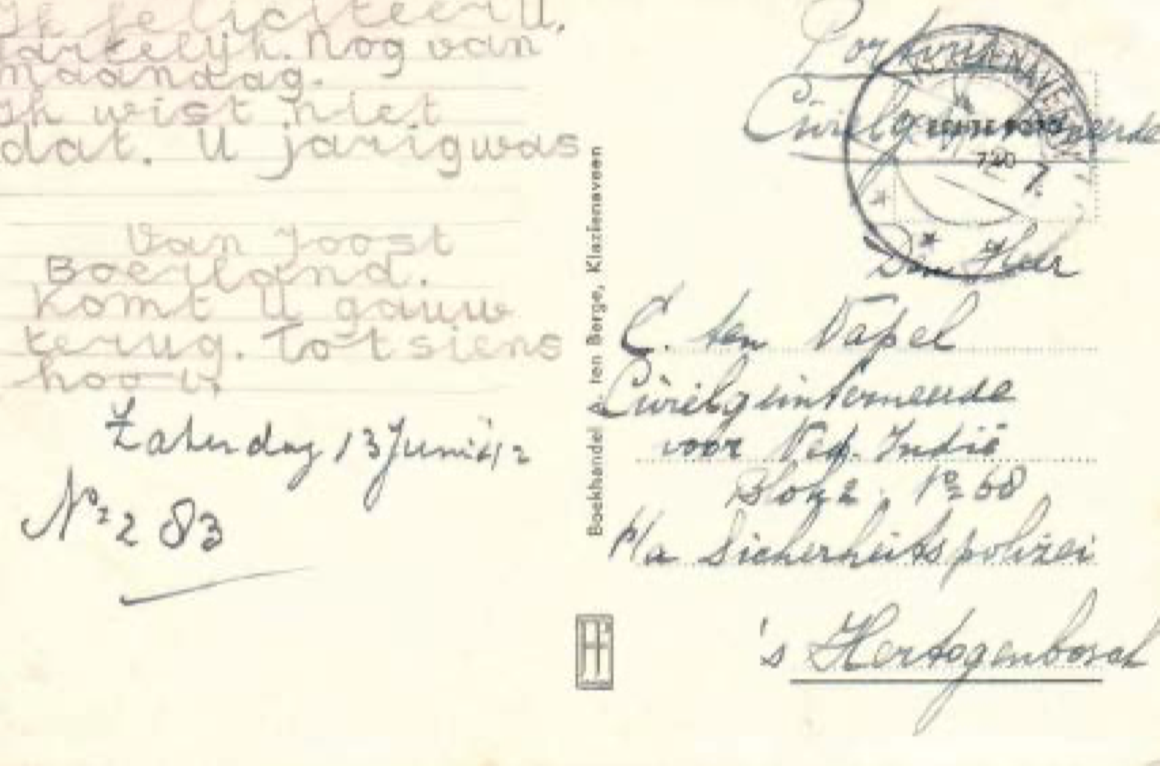 Ik feliciteer U.
hartelijk. Nog van
maandag.
Ik wist niet
dat. U jarig was
Van Joost
Boerland.
Komt U gauw
terug. Tot siens
hoor.
Zaterdag 13 Juni '42
No 283
Boekhandel A. ten Berge, Klazienaveen
Portvrij
Civielgeïnterneerde
KLAZIENAVEEN
ECHTE FOTO
Den Heer
C. ten Napel
Civielgeïnterneerde
voor Ned. Indië
Blok 2. No 68
P/a Sicherheitspolizei
's Hertogenbosch